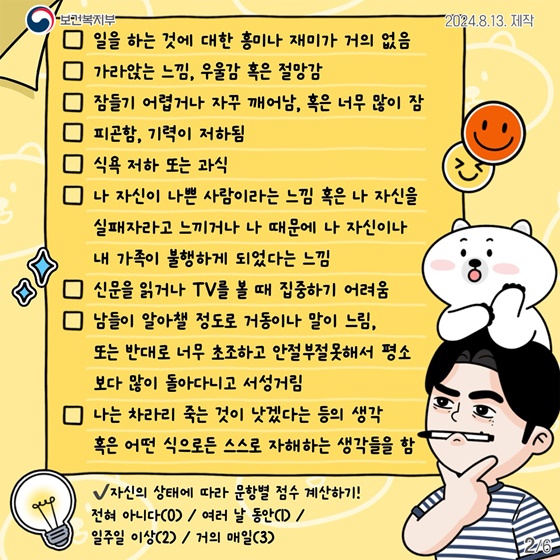 보건복지부
2024.8.13. 제작
일을 하는 것에 대한 흥미나 재미가 거의 없음
가라앉는 느낌, 우울감 혹은 절망감
잠들기 어렵거나 자꾸 깨어남, 혹은 너무 많이 잠
피곤함, 기력이 저하됨
식욕 저하 또는 과식
나 자신이 나쁜 사람이라는 느낌 혹은 나 자신을
실패자라고 느끼거나 나 때문에 나 자신이나
내 가족이 불행하게 되었다는 느낌
신문을 읽거나 TV를 볼 때 집중하기 어려움
남들이 알아챌 정도로 거동이나 말이 느림,
또는 반대로 너무 초조하고 안절부절못해서 평소
보다 많이 돌아다니고 서성거림
나는 차라리 죽는 것이 낫겠다는 등의 생각
혹은 어떤 식으로든 스스로 자해하는 생각들을 함
✓자신의 상태에 따라 문항별 점수 계산하기!
전혀 아니다(0) / 여러 날 동안(1) /
일주일 이상(2) / 거의 매일(3)
2/6